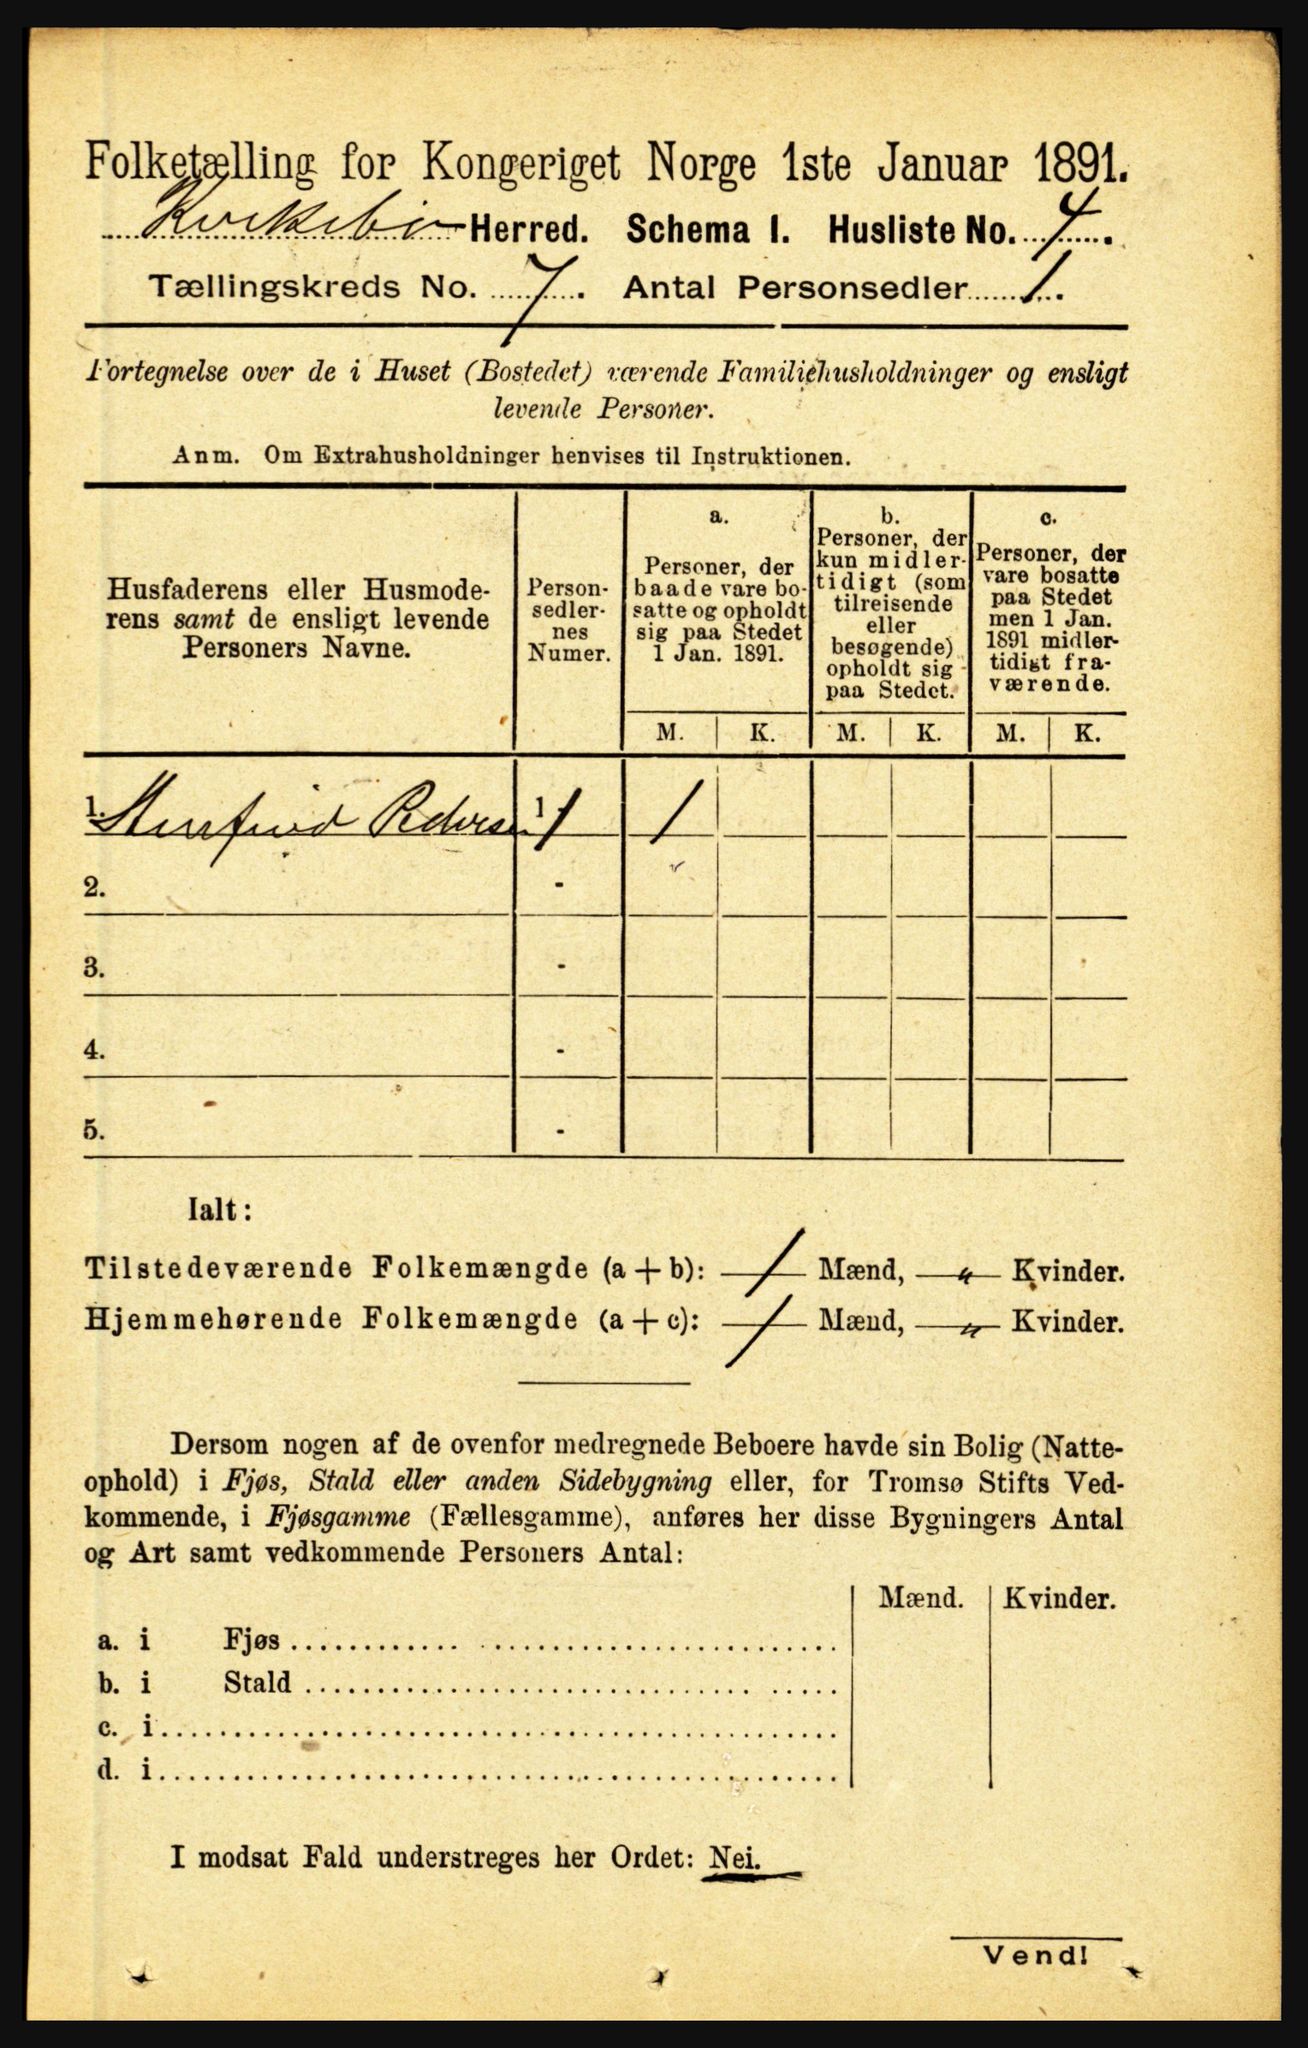 Folketælling for Kongeriget Norge 1ste Januar 1891.
Kirkebø Herred. Schema I. Husliste No. 4.
Tællingskreds No. 7. Antal Personsedler 1.
Fortegnelse over de i Huset (Bostedet) værende Familiehusholdninger og ensligt
levende Personer.
Anm. Om Extrahusholdninger henvises til Instruktionen.
Husfaderens eller Husmode-
rens samt de ensligt levende
Personers Navne.
Person-
sedler-
nes
Numer.
a.
Personer, der
baade vare bo-
satte og opholdt
sig paa Stedet
1 Jan. 1891.
b.
Personer, der
kun midler-
tidigt (som
tilreisende
eller
besøgende)
opholdt sig
paa Stedet.
c.
Personer, der
vare bosatte
paa Stedet
men 1 Jan.
1891 midler-
tidigt fra-
værende.
M. K. M. K. M. K.
1. Pedersen 1 1 1
2. -
3. -
4. -
5. -
Ialt:
Tilstedeværende Folkemængde (a + b): 1 Mænd, " Kvinder.
Hjemmehørende Folkemængde (a + c): 1 Mænd, " Kvinder.
Dersom nogen af de ovenfor medregnede Beboere havde sin Bolig (Natte-
ophold) i Fjøs, Stald eller anden Sidebygning eller, for Tromsø Stifts Ved-
kommende, i Fjøsgamme (Fællesgamme), anføres her disse Bygningers Antal
og Art samt vedkommende Personers Antal:
Mænd. Kvinder.
a. i Fjøs
b. i Stald
c. i
d. i
I modsat Fald understreges her Ordet: Nei.
Vend!